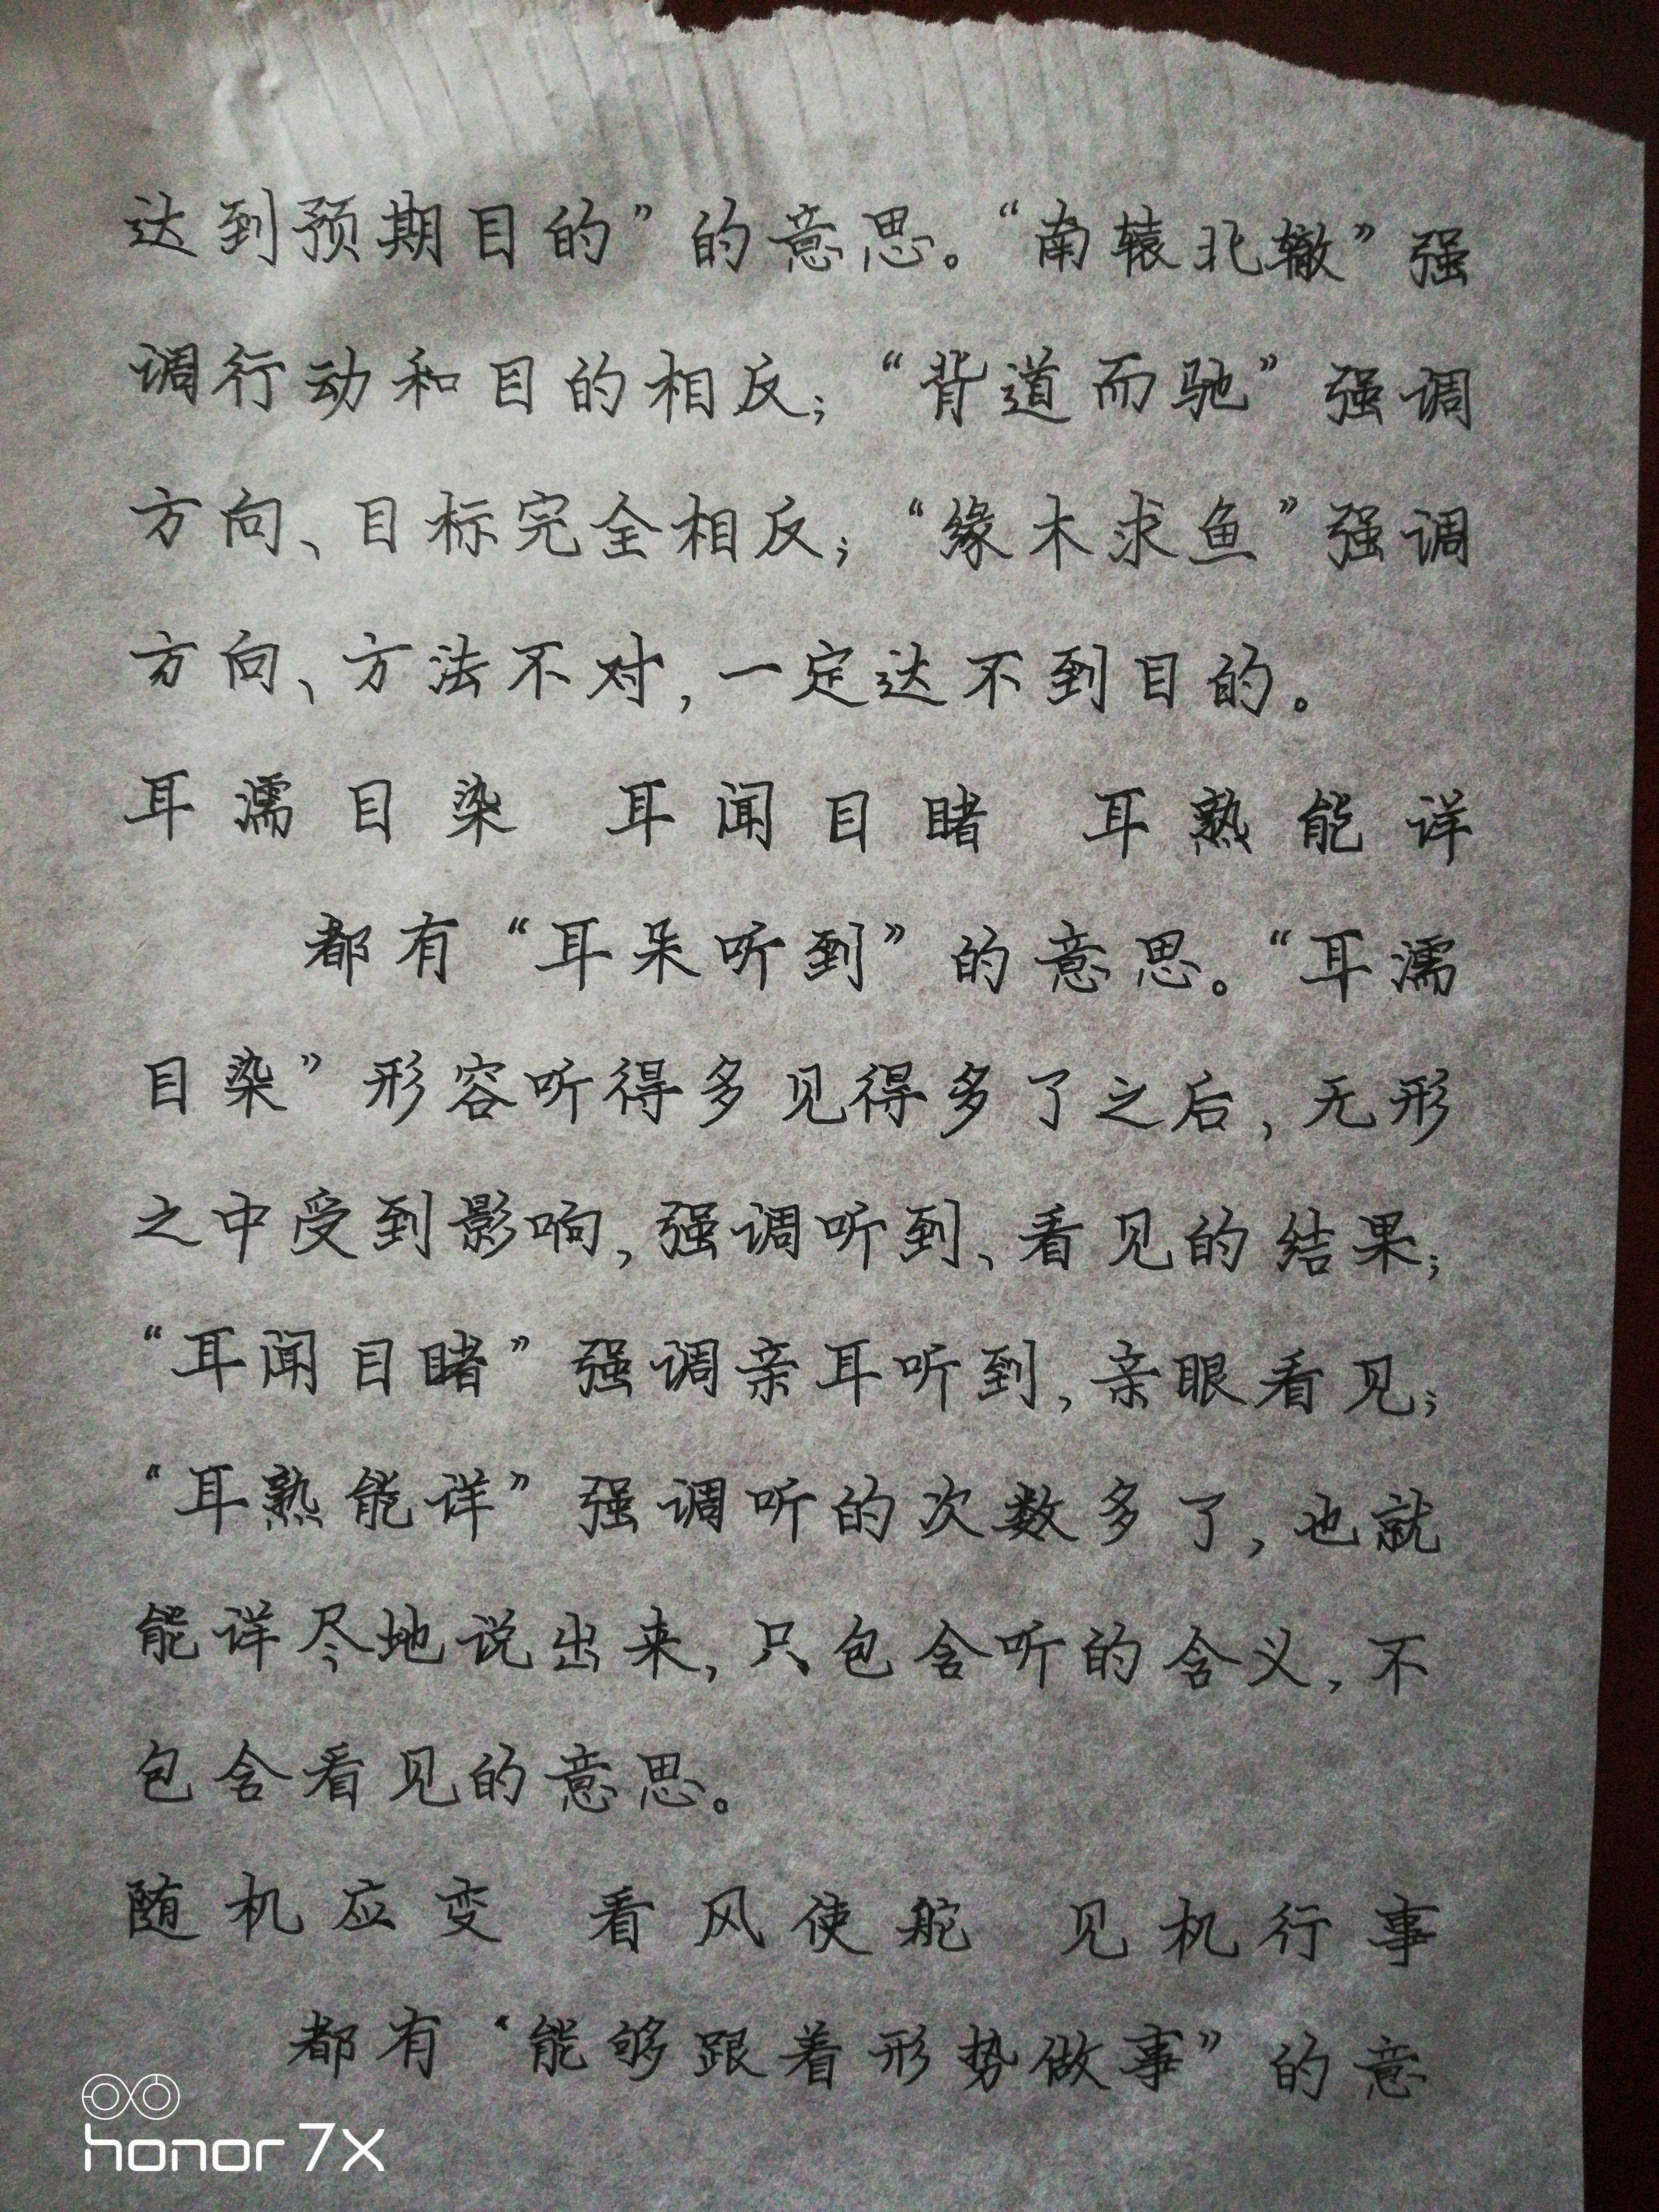 达到预期目的”的意思。“南辕北辙”强
调行动和目的相反；“背道而驰”强调
方向、目标完全相反；“缘木求鱼”强调
方向、方法不对，一定达不到目的。
耳濡目染 耳闻目睹 耳熟能详
都有“耳朵听到”的意思。“耳濡
目染”形容听得多见得多了之后，无形
之中受到影响，强调听到、看见的结果；
“耳闻目睹”强调亲耳听到，亲眼看见；
“耳熟能详”强调听的次数多了，也就
能详尽地说出来，只包含听的含义，不
包含看见的意思。
随机应变 看风使舵 见机行事
都有“能够跟着形势做事”的意
honor 7X